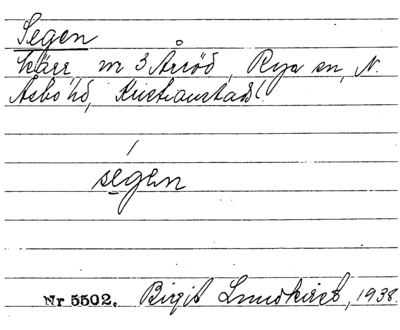 Segen
kärr, m 3 Årröd, Rya sn, N.
Åsbo hd, Kristianstads l.
segen
Nr 5502. Birgit Lundkvist, 1938.